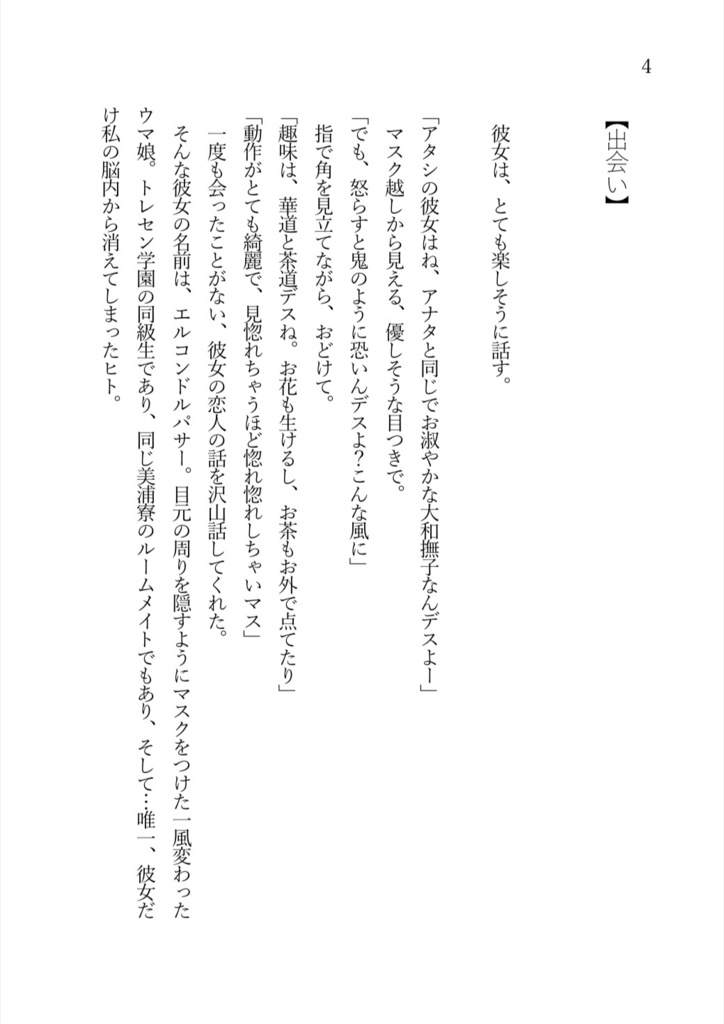 4
【出会い】
彼女は、とても楽しそうに話す。
「アタシの彼女はね、アナタと同じでお淑やかな大和撫子なんデスよー」
マスク越しから見える、優しそうな目つきで。
「でも、怒らすと鬼のように恐いんデスよ？こんな風に」
指で角を見立てながら、おどけて。
「趣味は、華道と茶道デスね。お花も生けるし、お茶もお外で点てたり」
「動作がとても綺麗で、見惚れちゃうほど惚れ惚れしちゃいマス」
一度も会ったことがない、彼女の恋人の話を沢山話してくれた。
そんな彼女の名前は、エルコンドルパサー。目元の周りを隠すようにマスクをつけた一風変わった
ウマ娘。トレセン学園の同級生であり、同じ美浦寮のルームメイトでもあり、そして…唯一、彼女だ
け私の脳内から消えてしまったヒト。